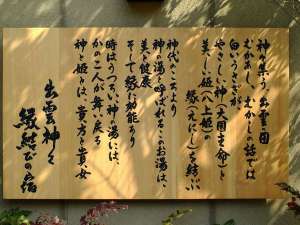 神々集う、出雲の国
むかぁし、むかしの話では
白いうさぎが
やさしい神(大国主命)と
美しい姫(八上姫)の
縁(えにし)を結ぶ
神代のころより
神の湯と呼ばれるこのお湯は、
美と健康
そして縁に効能あり
時はうつろい神の湯には、
かの二人が舞い戻る
神と姫とは、貴方と貴女
出雲神々
縁結びの宿